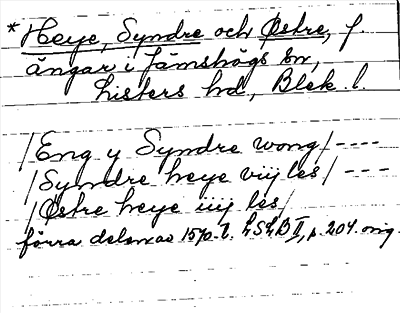 *Heye, Syndre och Östre, f.
ängar i Jämshögs sn,
Listers hd, Blek. l.
/Eng y Syndre wong/----
/Syndre heye viij les/---
/Östre heye iiij les/
förra delen av 1570-t. LSLB II, s. 204. orig.